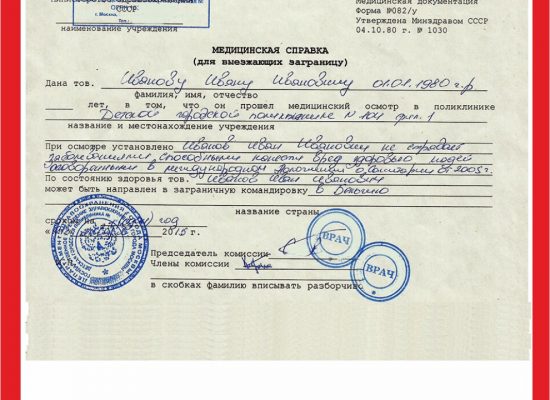 Медицинская документация
г. Москва,
Форма №082/у
Утверждена Минздравом СССР
наименование учреждения
04.10.80 г. № 1030
МЕДИЦИНСКАЯ СПРАВКА
(для выезжающих заграницу)
Дана тов. Иванову Ивану Ивановичу 01.01.1980 г.р.
фамилия, имя, отчество
лет, в том, что он прошел медицинский осмотр в поликлинике
Детской городской поликлинике №104 фил.1
название и местонахождение учреждения
При осмотре установлено Иванов Иван Иванович не страдает
заболеваниями, способными нанести вред здоровью людей
в международном о Санитарии от 2005 г.
По состоянию здоровья тов. Иванов Иван Иванович
может быть направлен в заграничную командировку в
название страны
сроком на год
2015 г.
Председатель комиссии
Члены комиссии
ВРАЧ
ВРАЧ
в скобках фамилию вписывать разборчиво